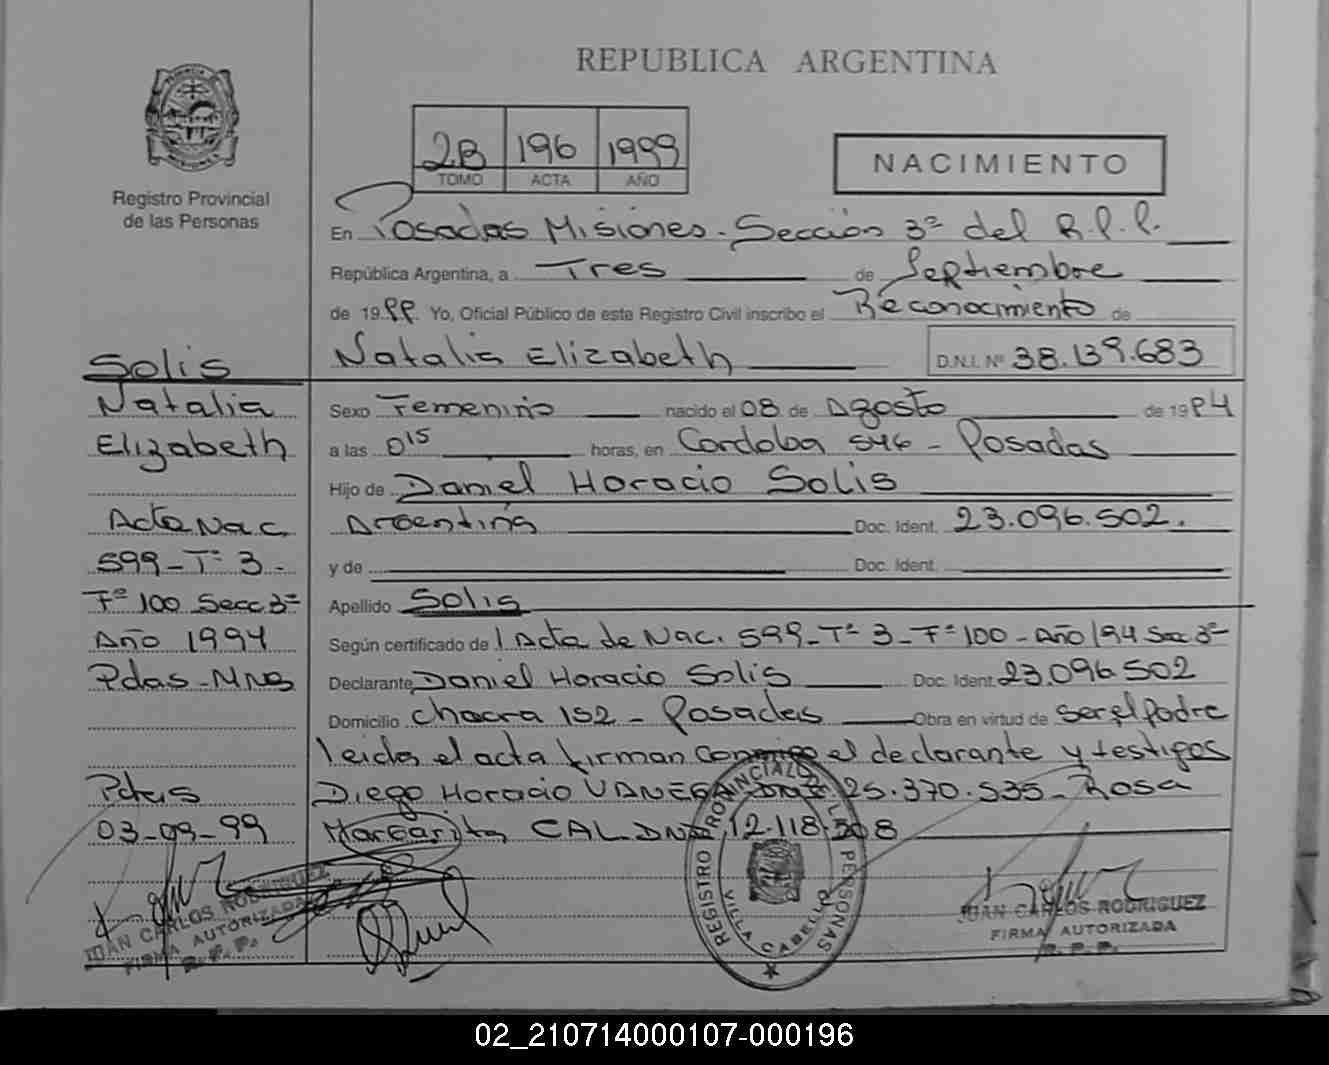 REPUBLICA ARGENTINA
Registro Provincial
de las Personas
2B 196 1999
TOMO ACTA AÑO
NACIMIENTO
En Posadas Misiones. Sección 3ª del R.P.P.
República Argentina, a Tres de Septiembre
de 1999. Yo, Oficial Público de este Registro Civil inscribo el Reconocimiento de
Natalia Elizabeth D.N.I. Nº 38.139.683
Sexo Femenino nacido el 08 de Agosto de 1994
a las 0 15 horas, en Cordoba 546 - Posadas
Hijo de Daniel Horacio Solis
Argentina Doc. Ident. 23.096.502.
y de Doc. Ident.
Apellido Solis
Según certificado de Acta de Nac. 599 - Tº 3 - Fº 100 - Año 1994 Sec 3ª
Declarante Daniel Horacio Solis Doc. Ident. 23.096.502
Domicilio chacra 152 - Posadas Obra en virtud de ser el padre
leida el acta firman conmigo el declarante y testigos
Diego Horacio VANEGA DNI 25.370.535 - Rosa
Margarita CAL DNI 12.118.508
Solis
Natalia
Elizabeth
Acta Nac.
599 - Tº 3 -
Fº 100 Secc 3ª
Año 1994
Pdas - Mnes
Pdas
03-09-99
JUAN CARLOS RODRIGUEZ
FIRMA AUTORIZADA
R.P.P.
REGISTRO PROVINCIAL DE LAS PERSONAS
VILLA CABELLO
JUAN CARLOS RODRIGUEZ
FIRMA AUTORIZADA
R.P.P.
02_210714000107-000196